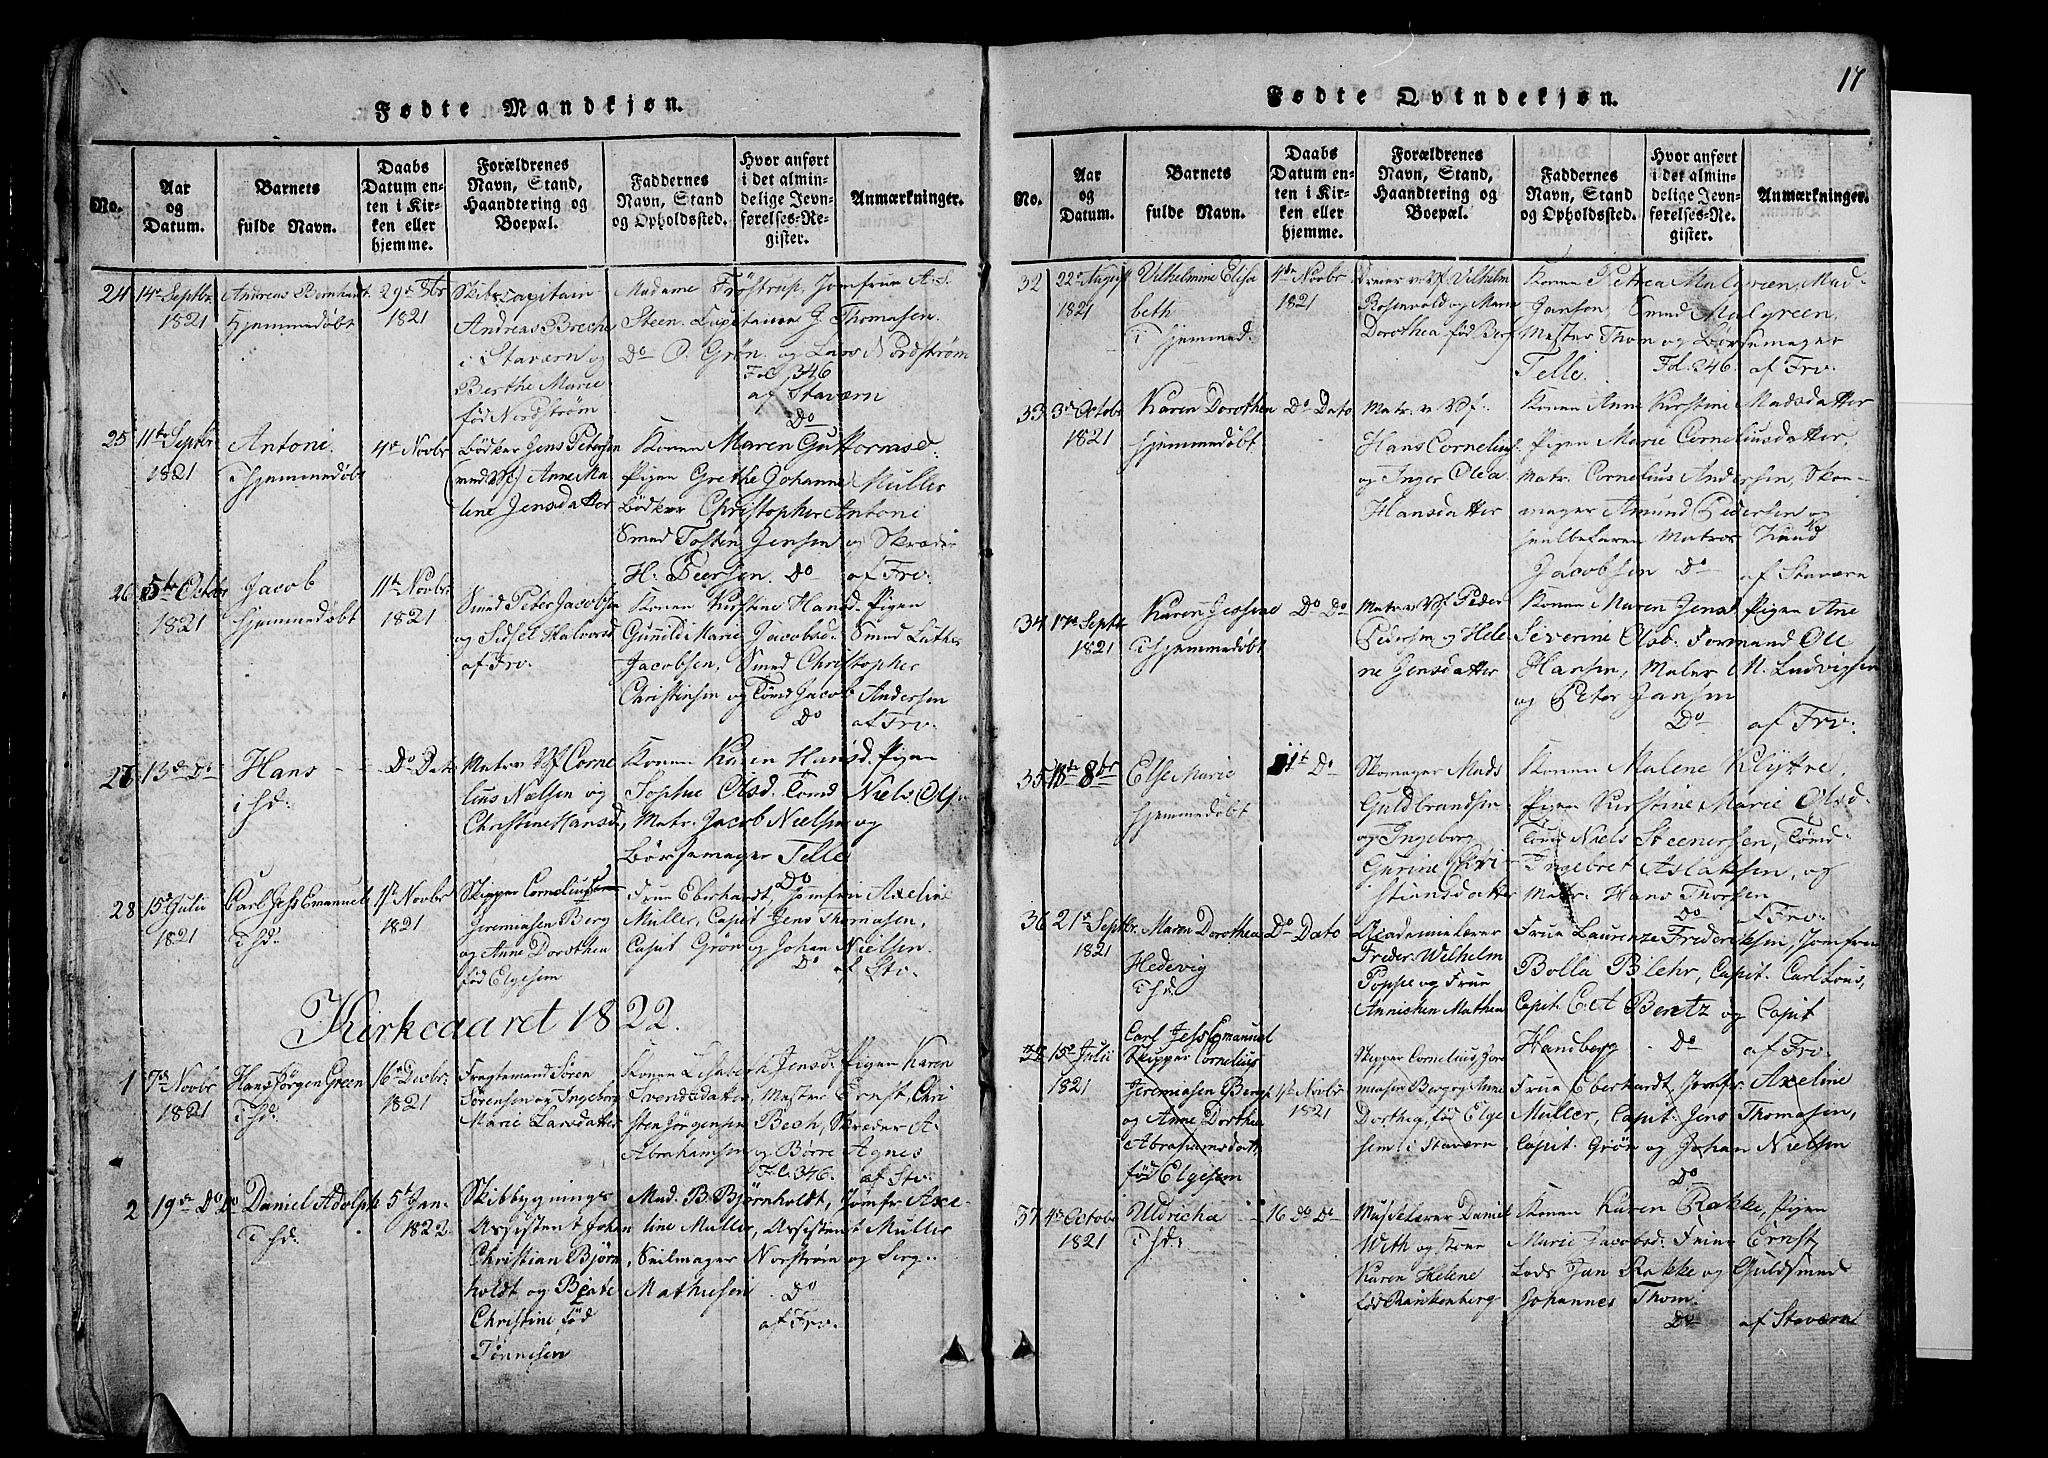 Fødte Mandkjøn.
No.
Aar og Datum.
Barnets fulde Navn.
Daabs Datum enten i Kirken eller hjemme.
Forældrenes Navn, Stand, Haandtering og Boepæl.
Faddernes Navn, Stand og Opholdssted.
Hvor anført i det almindelige Jevnførelses-Register.
Anmærkninger.
24
14de Septbr
1821
Andreas Bernhardt
hjemmedøbt
29de
1821
Skibscapitain
Andreas Breche
i Staværn og
Berthe Marie
fød Nordstrøm
Madame Frøstrup, Jomfrue A. S.
Steen. Capitainer J. Thomasen.
Do P. Grøn. og Lars Nordstrøm
Fol. 346
af Staværn
Do
25
11te Septbr
1821
Antoni
hjemmedøbt
4de Novbr
Bødker Jens Petersen
Anne Ma
lene Jensdatter
Konen Maren Guttormsd.
Pigen Grethe Johanne Muller
Bødker Christopher Antoni
Smed Tosten Jensen og Skræder
H. Peersen. Do af Frv.
26
5te Octobr
1821
Jacob
hjemmedøbt
11te Novbr
1821
Smed Peter Jacobsen
og Sidsel Halvorsd
af Frv.
Konen Kirstine Hansd. Pigen
Gunild Marie Jacobsd. Smed Luther
Jacobsen, Smed Christopher
Christinsen og Tømd Jacob Andersen
Do af Frv.
27
13de Do
Hans
i hd.
Do Dato
Matr. v Vf Corne
lius Nielsen og
Christine Hansd.
Konen Karen Hansd. Pigen
Sophie Olsd. Tømd Niels Ols.
Matr. Jacob Nielsen og
Børsemager Telle
Do
28
15de Julii
1821
Carl Jess Emanuel
i hd.
1ste Novbr
1821
Skipper Cornelius
Jeremiasen Berg
og Anne Dorothea
fød Elgesem
Frue Eberhardt, Jomfrue Axeline
Muller, Capit Jens Thomasen,
Capit Grøn og Johan Nielsen
Do af Stv.
Kirkeaaret 1822.
1
7de Novbr
1821
Hans Jørgen Green
i hd.
16de Decbr.
1821
Fragtemand Søren
Sørensen og Ingeborg
Marie Larsdatter
Konen Lisabeth Jensd. Pigen Karen
Svendsdatter, Mester Ernst Chri
sten Jørgensen Bech, Skræder A.
Abrahamsen og Børre Agnes
Fol. 346. af Stv.
2
19de Do Do
Daniel Adolph
i hd.
5t Jan.
1822.
Skibbygnings
Assistent Johan
Christian Bjørn
holdt og Beate
Christine fød
Tønnesen
Mad. B. Bjørnholdt, Jomfr. Axe-
line Muller, Assistent Muller
Seilmager Norstrøm og Serg..
Mathiesen
Do
af Frv.
17
Fødte Qvindekjøn.
No.
Aar og Datum.
Barnets fulde Navn.
Daabs Datum enten i Kirken eller hjemme.
Forældrenes Navn, Stand, Haandtering og Boepæl.
Faddernes Navn, Stand og Opholdssted.
Hvor anført i det almindelige Jevnførelses-Register.
Anmærkninger.
32
22de August
1821
Vilhelmine Elisa
beth
hjemmed.
4de Novbr
1821
Vilhelm
Rosenvold og Maria
Dorothea fød Berg
Konen Petrea Malgreen, Mad-
Jansen, Smed Malgreen,
Mester Thom og Børsemager
Telle. Fol. 246. af Frv.
33
3de Octobr
1821
Karen Dorothea
hjemmedøbt
Do Dato
Matr. v Vf.
Hans Cornelius.
og Inger Olea
Hansdatter
Konen Anne Kirstine Madsdatter
Pigen Marie Corneliusdatter,
Matr. Cornelius Andersen, Skoe-
mager Amund Pedersen og
seilbefaren Matros Knud
Jacobsen Do af Staværn
34
17de Septbr
1821
Karen Jessine
hjemmedøbt
Do Do
Matr v Vf Peder
Pedersen og Hele
ne Jensdatter
Konen Maren Jens. Pigen Ane
Severine Olsd. Formand Ole
Hansen, Maler M. Ludvigsen
og Peter Jansen
Do af Frv.
35
8br
Else Marie
hjemmedøbt
11te Do
Skomager Mads
Guldbrandsen
og Ingeborg
Gurine Chri
stiansdatter
Konen Malene Klykke,
Pigen Kirstine Marie Olsd.
Tømd Niels Steenersen, Tømd-
Ingebret Aslaksen, og
Matr. Hans Thorsen
Do af Frv.
36
21de Septbr.
1821
Maren Dorothea
Hedevig
i hd.
Do Dato
Academielærer
Freder. Wilhelm
Poppe og Frue
Annichen Mathea
Frue Laurenze Frederiksen, Jomfrue
Bolla Blehr, Capit. Carl Lous,
Capit. C. A Beretz og Capit
Handberg Do af Frv.
15de Julii
1821
Carl Jess Emanuel
Skipper Cornelius
Jeremiasen Berg
og Anne Dorothea
Abrahamsdatter
fød Elgesem
1ste Novbr
1821
Skipper Cornelius Jere
miasen Berg og Anne
Dorthea, fød Elge
sem i Staværn
Frue Eberhardt, Jomfr. Axeline
Muller, Capit: Jens Thomasen,
Capit: Grøn og Johan Nielsen
Do
37
4de Octobr
1821
Uldricha
i hd:
16 Do Do
Daniel
With og Kone
Karen Helene
fød Rankenberg
Konen Karen Rakke, Pigen
Marie Jacobsd: Feier Ernst
Lods Jan Rakke og Guldsmed
Johannes Thom.
Do af Staværn